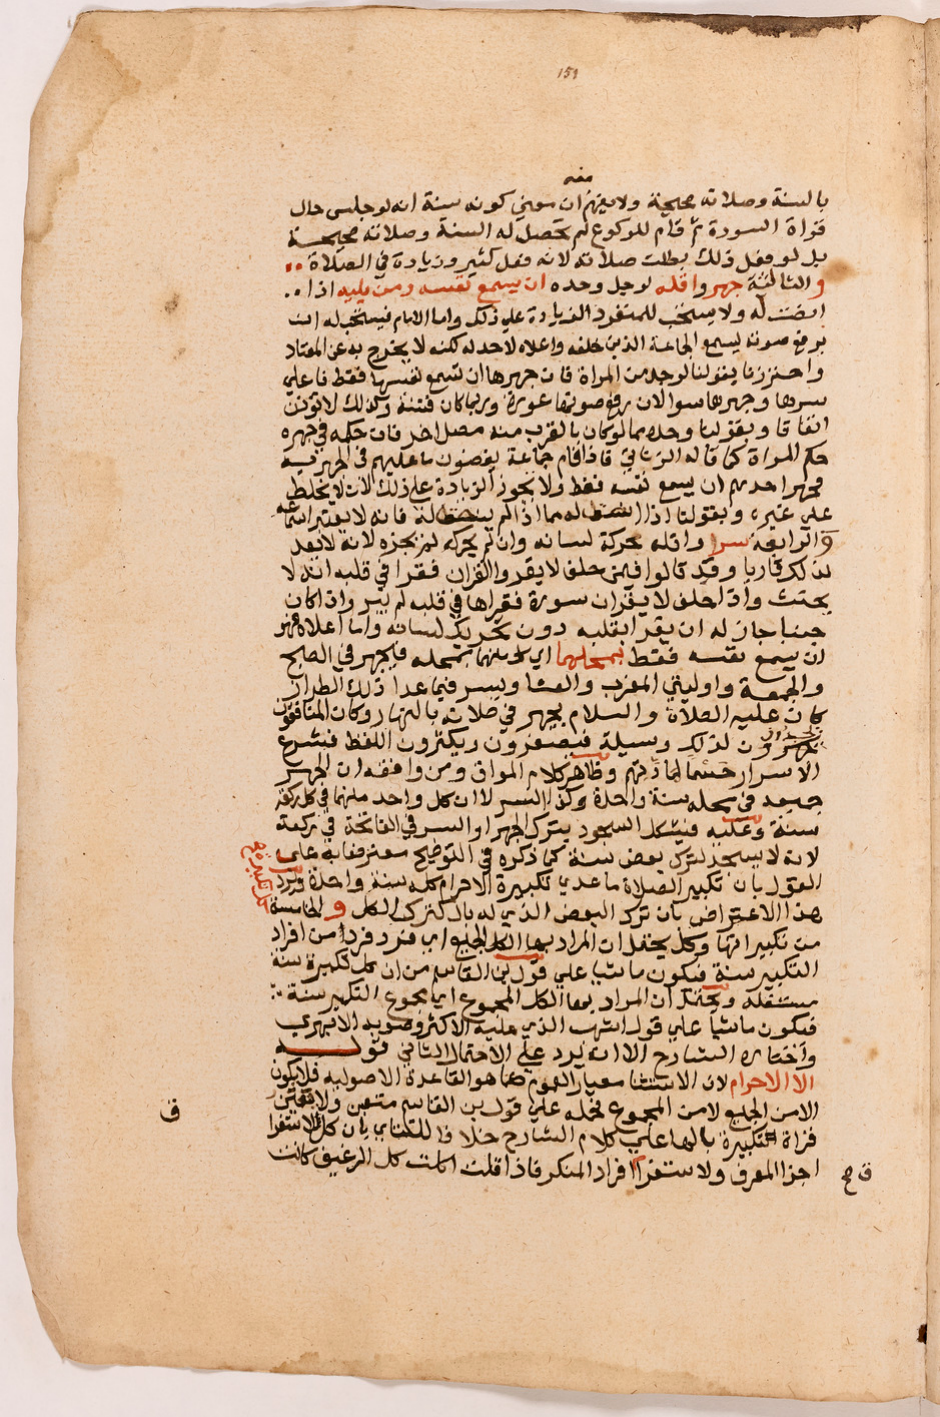 151
منه
بالسنة وصلاته صحيحة ولا يفهم ان معنى كونه سنة انه لو جلس حال
قراة السورة ثم قام للركوع لم تحصل له السنة وصلاته صحيحة
بل لو فعل ذلك بطلت صلاته لانه فعل كثير وزيادة في الصلاة
و الثالثة جهر واقله لرجل وحده ان يسمع نفسه ومن يليه اذا
انصت له ولا يستحب للمنفرد الزيادة علي ذلك واما الامام فيستحب له ان
يرفع صوته ليسمع الجماعة الذين خلفه واعلاه لاحد له لكنه لا يخرج به عن المعتاد
واحترزنا بقولنا لرجل من المراة فان جهرها ان تسمع نفسها فقط فاعلي
سرها وجهرها سوا لان رفع صوتها عورة وربما كان فتنة وكذلك لا تؤذن
اتفاقا وبقولنا وحده مما لو كان بالقرب منه مصل اخر فان حكمه في جهره
حكم المراة كما قاله الزناتي فاذا قام جماعة يقضون ما عليهم في الجهر فيه
فجهر احدهم ان يسمع نفسه فقط ولا تجوز الزيادة علي ذلك لان لا يخلط
على غيره وبقولنا اذا انصت له مما اذا لم ينصت له فانه لا يعتبر اسماعه
و الرابعة سرا واقله حركة لسانه وان لم يحركه لم يجزه لانه لا يعد
بذلك قاريا وقد قالوا فيمن حلف لا يقرو القران فقرا في قلبه انه لا
يحنث واذا حلف لا يقران سورة فقراها في قلبه لم يبر واذا كان
جنبا جاز له ان يقرا بقلبه دون تحريك لسانه واما اعلاه فهو
ان يسمع نفسه فقط بمحلهما اي كل منهما بمحله فالجهر في الصبح
والجمعة واوليتي المغرب والعشا ويسر فيما عدا ذلك الطراز
كان عليه الصلاة والسلام يجهر في صلاته بالنهار وكان المنافقون
لذلك وسيلة فيصفرون ويكثرون اللغط فشرع
الاسرار حسما لمادتهم وظاهر كلام المواق ومن وافقه ان الجهر
جميعه في محله سنة واحدة وكذا السر لا ان كل واحد منهما في كل ركعة
سنة وعليه فيشكل السجود بترك الجهر او السر في الفاتحة في ركعة
لانه لا يسجد لترك بعض سنة كما ذكره في التوضيح معترضا به على
القول بان تكبير الصلاة ما عدي تكبيرة الاحرام كله سنة واحدة ورد
هذا الاعتراض بان ترك البعض الذي له بال كترك الكل و الخامسة
من تكبيراتها وكل يحتمل ان المراد بها الكل الجميع اي فرد فردا من افراد
التكبير سنة فيكون ماشيا علي قول بن القاسم من ان كل تكبيرة سنة
مستقلة ويحتمل ان المراد بها الكل المجموع اي مجموع التكبير سنة
فيكون ماشيا علي قول اشهب الذي عليه الاكثر وصوبه الابهري
واختاره الشارح الا انه يرد علي الاحتمال الثاني قوله
الا الاحرام لان الاستثنا معيار العموم كما هو القاعدة الاصولية فلا يكون
الا من الجميع لا من المجموع فحمله علي قول بن القاسم متعين ولا يتعين
قراة تكبيرة بالها علي كلام الشارح خلافا للتتاي بان كل لاستغرا
اجزا المعرف ولاستغرا افراد المنكر فاذا قلت اكلت كل الرغيف كانت
ق